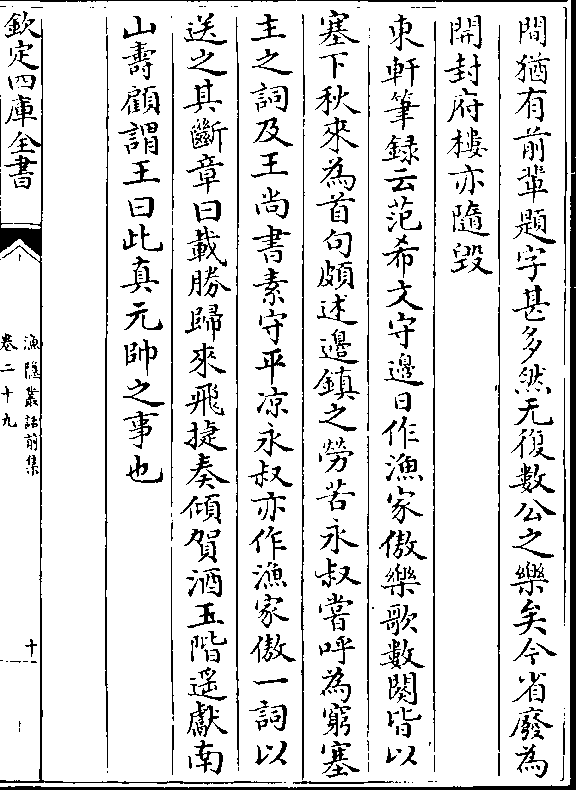 間猶有前輩題字甚多然无復數公之樂矣今省廢為
開封府樓亦隨毀
東軒筆録云范希文守邊日作漁家傲樂歌數闋皆以
塞下秋來為首句頗述邊鎮之勞苦永叔嘗呼為窮塞
主之詞及王尚書素守平凉永叔亦作漁家傲一詞以
送之其斷章曰戰勝歸來飛捷奏傾賀酒玉階遥獻南
山壽顧謂王曰此真元帥之事也
欽定四庫全書
漁隱叢話前集
卷二十九
十